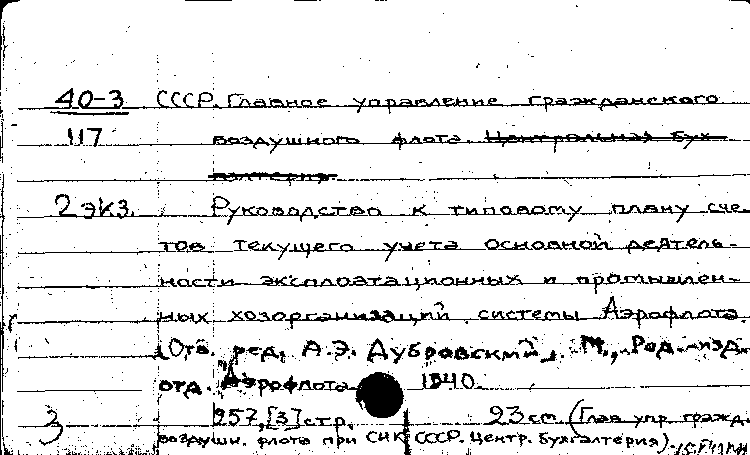 40-3 СССР. Главное управление гражданского
117 воздушного флота. Центральная бух-
галтерия.
2 экз. Руководство к типовому плану сче-
тов текущего учета основной деятель-
ности эксплоатационных и промышлен-
ных хозорганизаций системы Аэрофлота.
[Отв. ред. А.Э. Дубровский]. М., Ред.-изд.
отд. Аэрофлота 1940.
3 257,[3] стр. 23 см. (Глав упр. гражд.
воздушн. флота при СНК СССР. Центр. бухгалтерия).